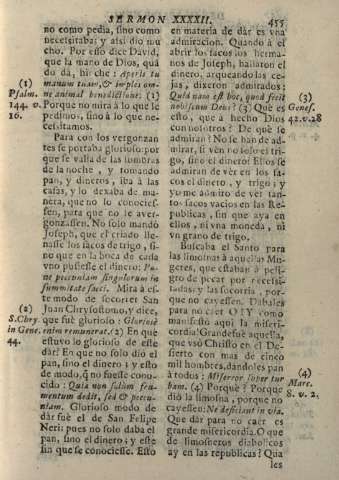 SERMON XXXXII.
455
no como pedia, sino como
necessitaba; y assi dió mu
cho. Por esso dice David,
que la mano de Dios, quã
do dá, hiche: Aperis tu
manum tuam, & imples om-
ne animal benedictione: (1)
Porque no mira á lo que le
pedimos, sino á lo que ne-
cessitamos.
Para con los vergonzan
tes se portaba glorioso; por
que se valia de las sombras
de la noche, y tomando
pan, y dineros, iba á las
casas, y lo dexaba de ma-
nera, que no lo conocies-
sen, para que no le aver-
gonzassen. No solo mandó
Joseph, que el criado lle-
nasse los sacos de trigo, si-
no que en la boca de cada
vno pusiesse el dinero: Po-
ne pecuniam singulorum in
summitate sacci. Mira á es-
te modo de socorrer San
Juan Chrysostomo, y dice,
que fué glorioso: Gloriosè
enim remunerat. (2) En que
estuvo lo glorioso de este
dár? En que no solo dió el
pan, sino el dinero; y esto
de modo, q̃ no fuesse cono-
cido: Quia non solùm fru-
mentum dedit, sed & pecu-
niam. Glorioso modo de
dár fué el de San Felipe
Neri: pues no solo daba el
pan, sino el dinero; y este
sin que se conociesse. Esto
(1)
Psalm.
144. v.
16.
(2)
S. Chry.
in Gene.
44.
en materia de dár es vna
admiracion. Quando á el
abrir los sacos los herma-
nos de Joseph, hallaron el
dinero, arqueando las ce-
jas, dixeron admirados:
Quid nam est hoc, quod fecit
nobis cum Deus? (3) Que es
esto, que á hecho Dios
con nosotros? De qué se
admiran? No se han de ad-
mirar, si ven no solo el tri-
go, sino el dinero! Ellos se
admiran de vér en los sa-
cos el dinero, y trigo; y
yo me admiro de vér tan-
tos sacos vacios en las Re-
publicas, sin que aya en
ellos, ni vna moneda, ni
vn grano de trigo.
Buscaba el Santo para
las limosnas á aquellas Mu-
geres, que estaban á peli-
gro de pecar por necessi-
tadas; y las socorria, por-
que no cayessen. Dabales
para no caer O! Y como
manifestó aqui la miseri-
cordia! Grande fué aquella,
que vsó Christo en el De-
sierto con mas de cinco
mil hombres, dandoles pan
á todos: Misereor super tur
bam. (4) Porqué? Porque
dió la limosna, porque no
cayessen: Ne deficiant in via.
Que dár para no caer es
grande misericordia. O que
de limosneros diabolicos
ay en las republicas? Qua
les
(3)
Genes.
42. v. 28
(4)
Marc.
8. v. 2.